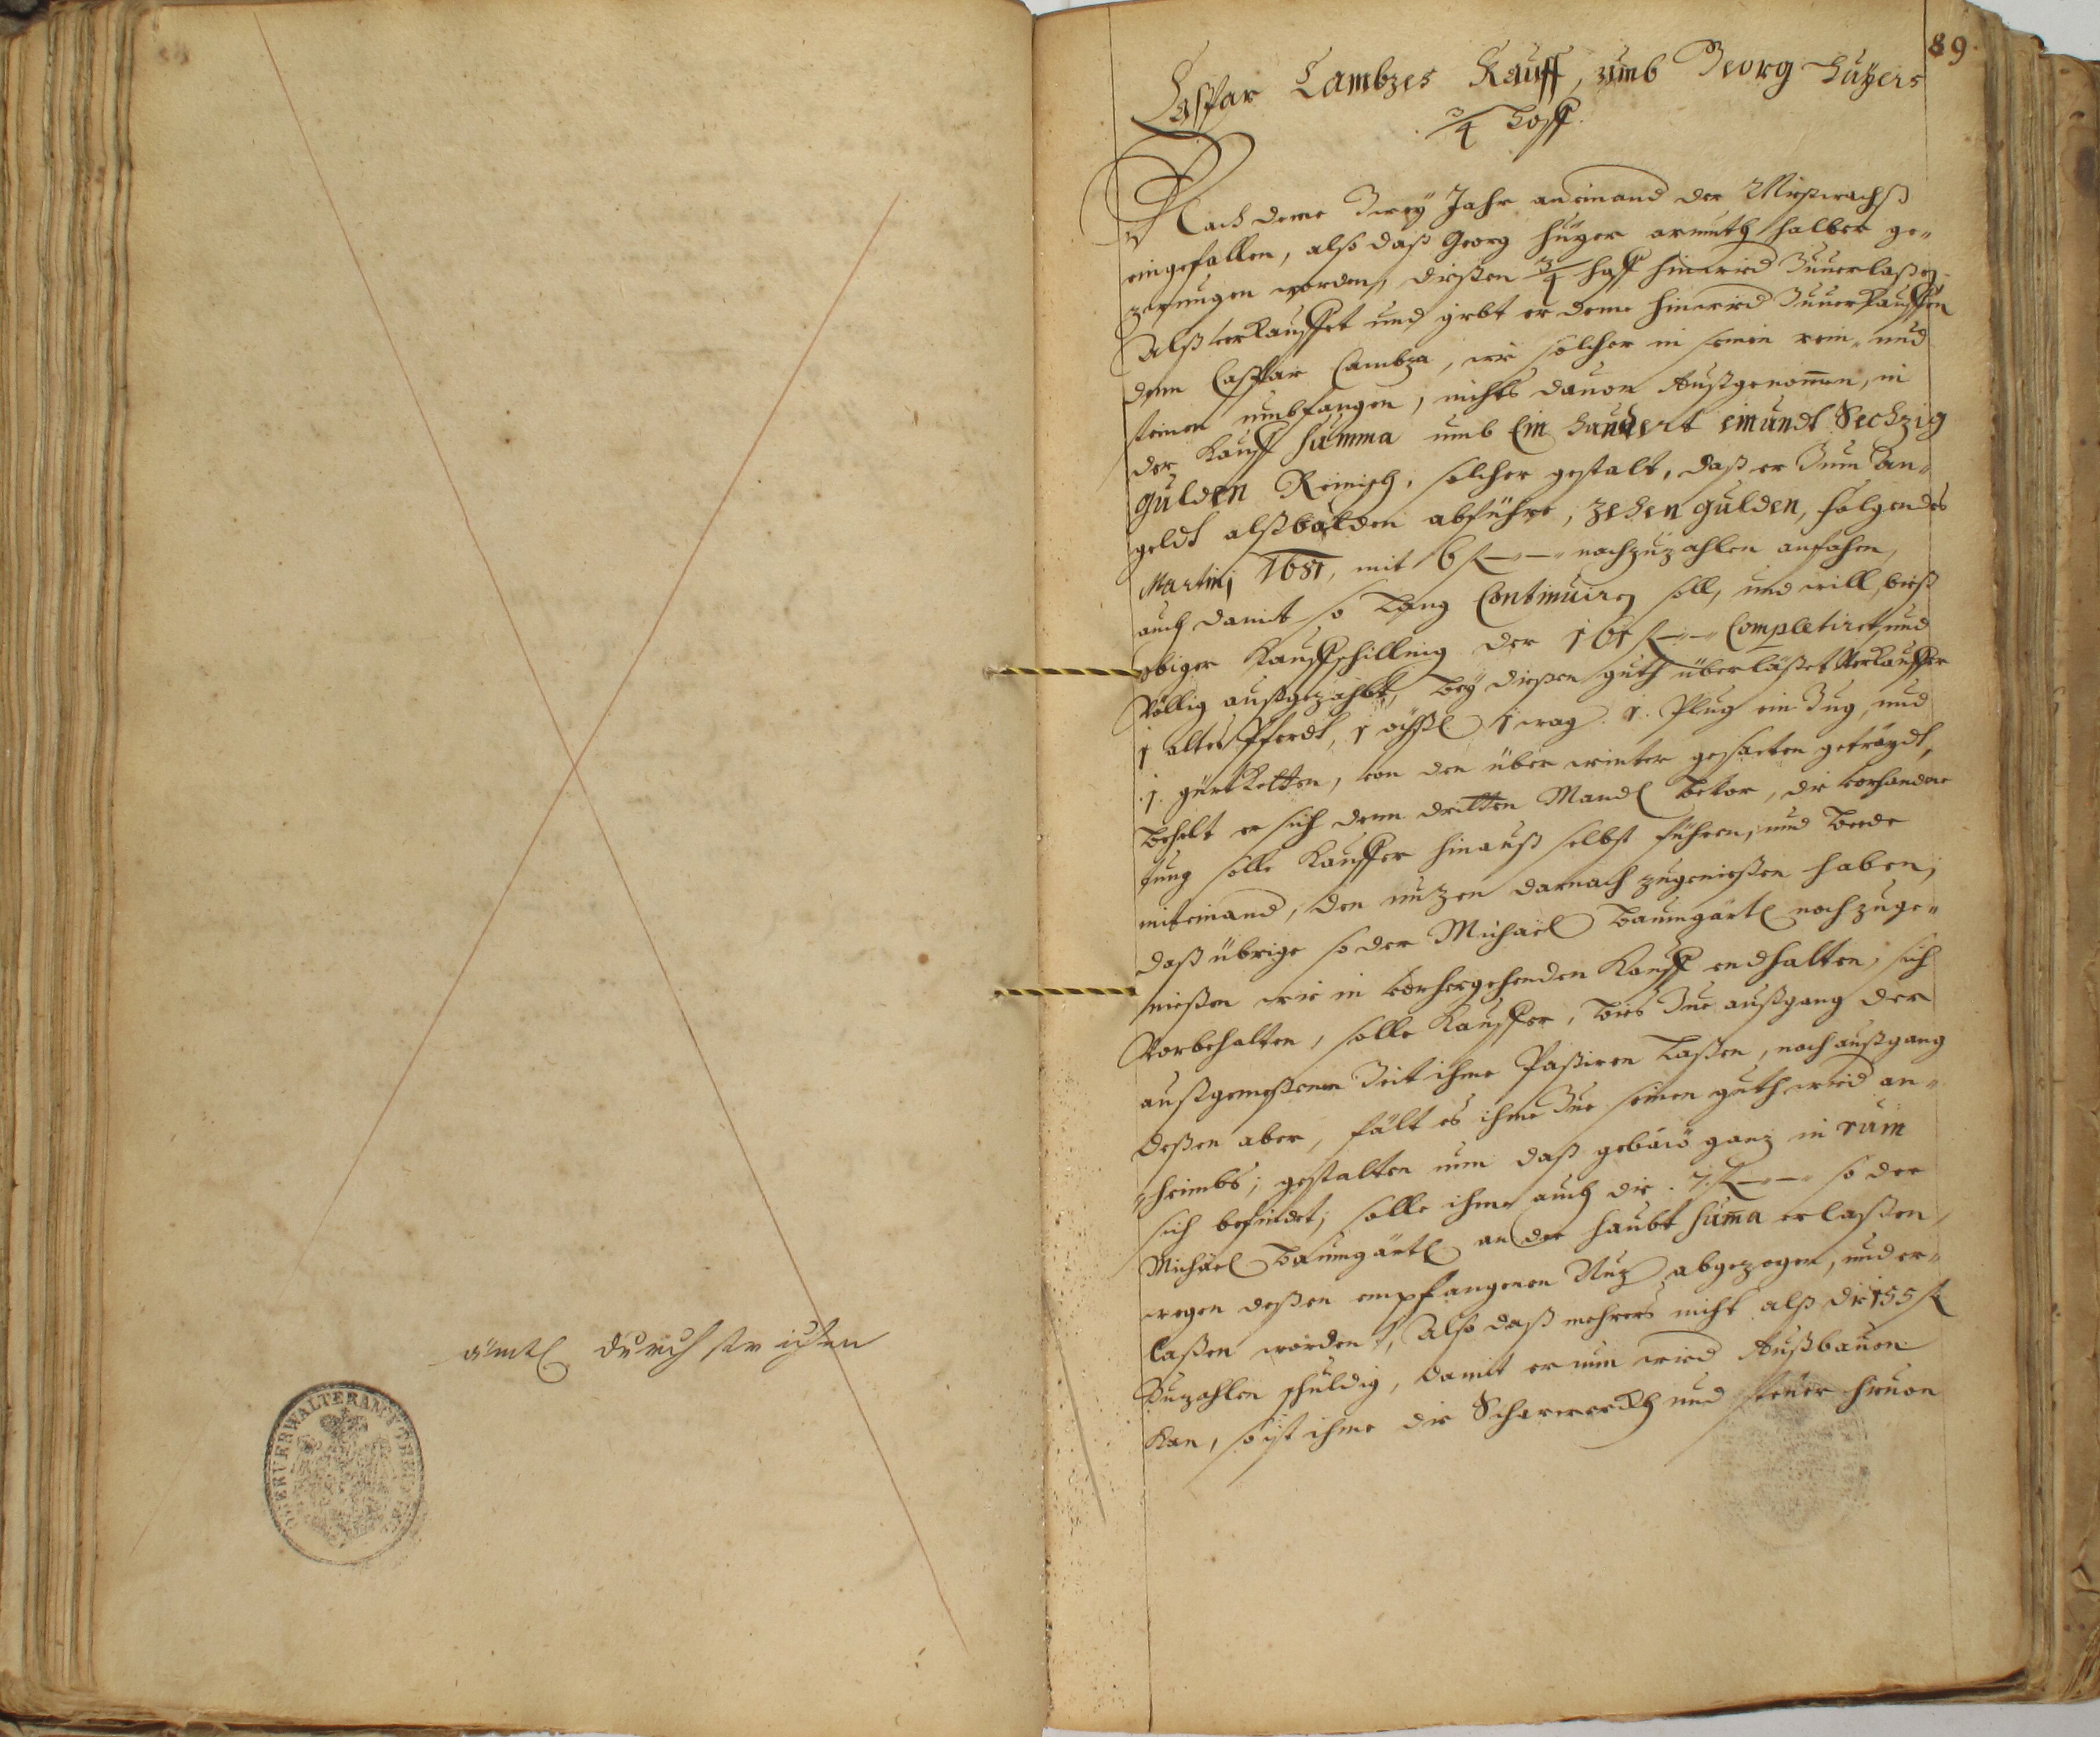 ämtl durchstrichen
OBERVERWALTERAMT
89.
Caspar Cambzes Kauff, umb Georg Huÿers
3/4 Hoff.
Nach deme Zweÿ Jahr aneinand der Mißwachß
eingefallen, also daß Georg Huÿer armuth halber ge„
zwungen worden, dießen 3/4 Hoff hinwied Zuuerlaßen.
Alß verkauffet und gibt er deme hinwied Zuuerkauffen
dem Caspar Cambza, wie solcher in seinen rein„ und
steinen umbfangen, nichts dauon Außgenommen, in
der Kauff Summa umb Ein Hundert einundt Sechzig
gulden Reinisch, solcher gestalt, daß er Zum An„
geldt alßbalden abführe, zehen gulden, folgendes
Martinj 1681, mit 6 f nachzuzahlen anfahen,
auch damit so lang Continuiren soll, und will, bieß
obiger Kauffschilling der 161 f Completiret und
Völlig außgezahlt, Beÿ dießen guth überläßet Verkauffer
1 altes Pferdt, 1 1 wag. 1. Plug ein Zug, und
.1. gürtketten, von den über winter gesaeten getraÿdt,
Behelt er sich denn dritten Mandl beuor, die vorhandene
tung solle Kauffer hinauß selbst führen, und Beede
miteinand, den nutzen darnach zugenießen haben,
daß übrige so der Michael Baumgärtl noch zuge„
nießen wie in vorhergehenden Kauff endhalten, sich
Vorbehalten, solle Kauffer, bies Zue außgang der
außgemeßenen Zeit ihme Paßiren laßen, nach außgang
deßen aber, fält es ihme Zue seinen guth wied an„
„heimbs; gestalten nun daß gebäid ganz in ruin
sich befindet, solle ihme auch die .7. f so der
Michael Baumgärtl an der haubt Suma erlaßen,
wegen deßen empfangenen Nuz abgezogen, und er„
laßen worden, Also daß mehrers nicht alß die 155 f
Zuzahlen schuldig, damit er nun wied Außbauen
Kan, so ist ihme die Scharwerckh und steüer hieuon